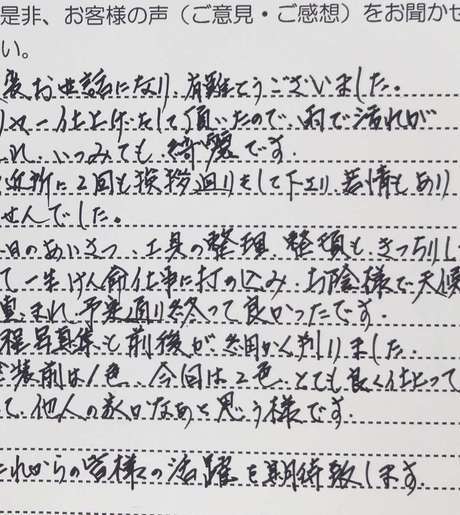 是非、お客様の声（ご意見・ご感想）をお聞かせ
い。
お世話になり、有難とうございました。
仕上げをして頂いたので、雨で汚れが
れ、いつみても、綺麗です。
近所に2回も挨拶廻りをして下エリ、苦情もあり
せんでした。
日のあいさつ、工具の整理、整頓も、きっちりし
て一生けん命仕事に打の込み、お陰様で天候
恵まれ、予定通り終って良かったです。
程写真集も前後が細かく判りました。
装前は1色、今回は2色、とても良く仕上って
て、他人の家かなあと思う様です。
れからの皆様の活躍を期待致します。